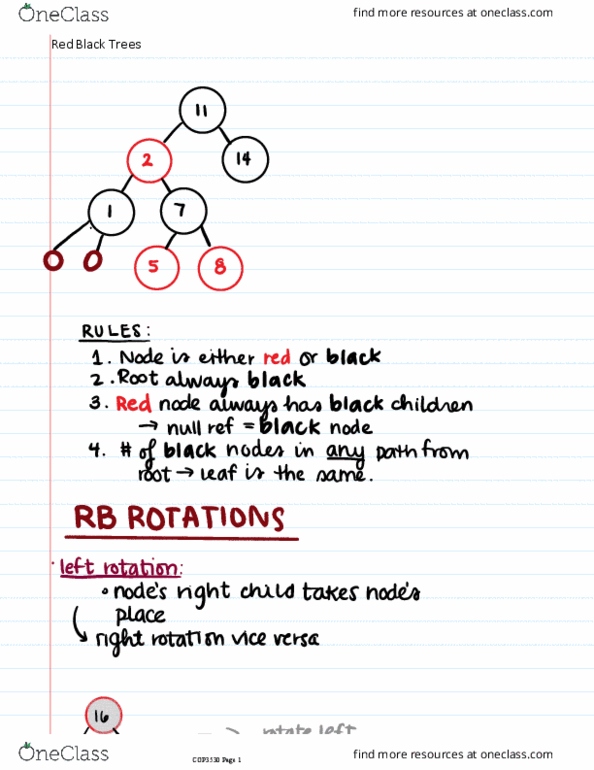 OneClass
find more resources at oneclass.com
Red Black Trees
11
2
14
1
7
5
8
RULES:
1. Node is either red or black
2. Root always black
3. Red node always has black children
→ null ref = black node
4. # of black nodes in any path from
root → leaf is the same.
RB ROTATIONS
• left rotation:
• node's right child takes node's
place
↳ right rotation vice versa
16
→ rotate left
OneClass
COP3530 Page 1
find more resources at oneclass.com